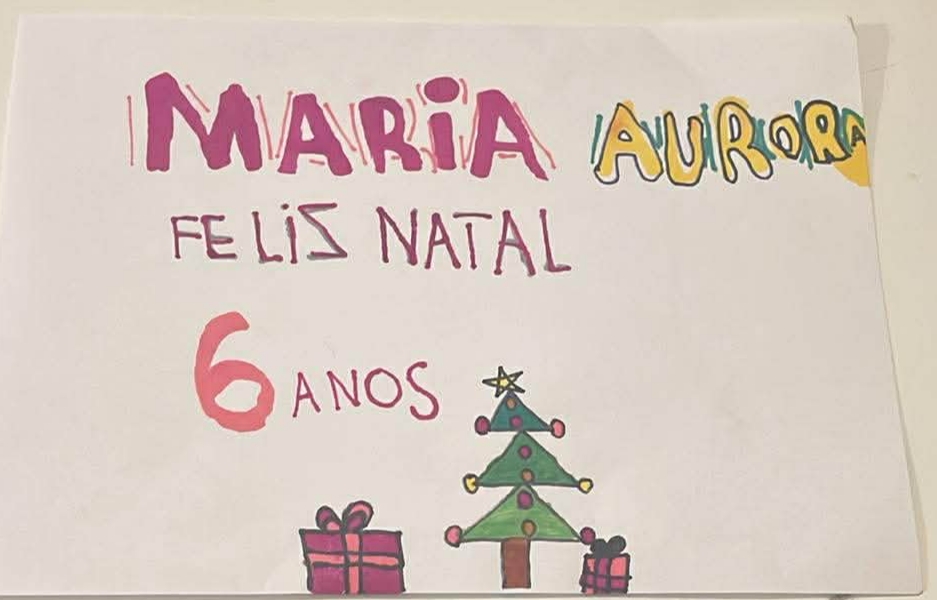 MARiA AURORA
FELiS NATAL
6 ANOS